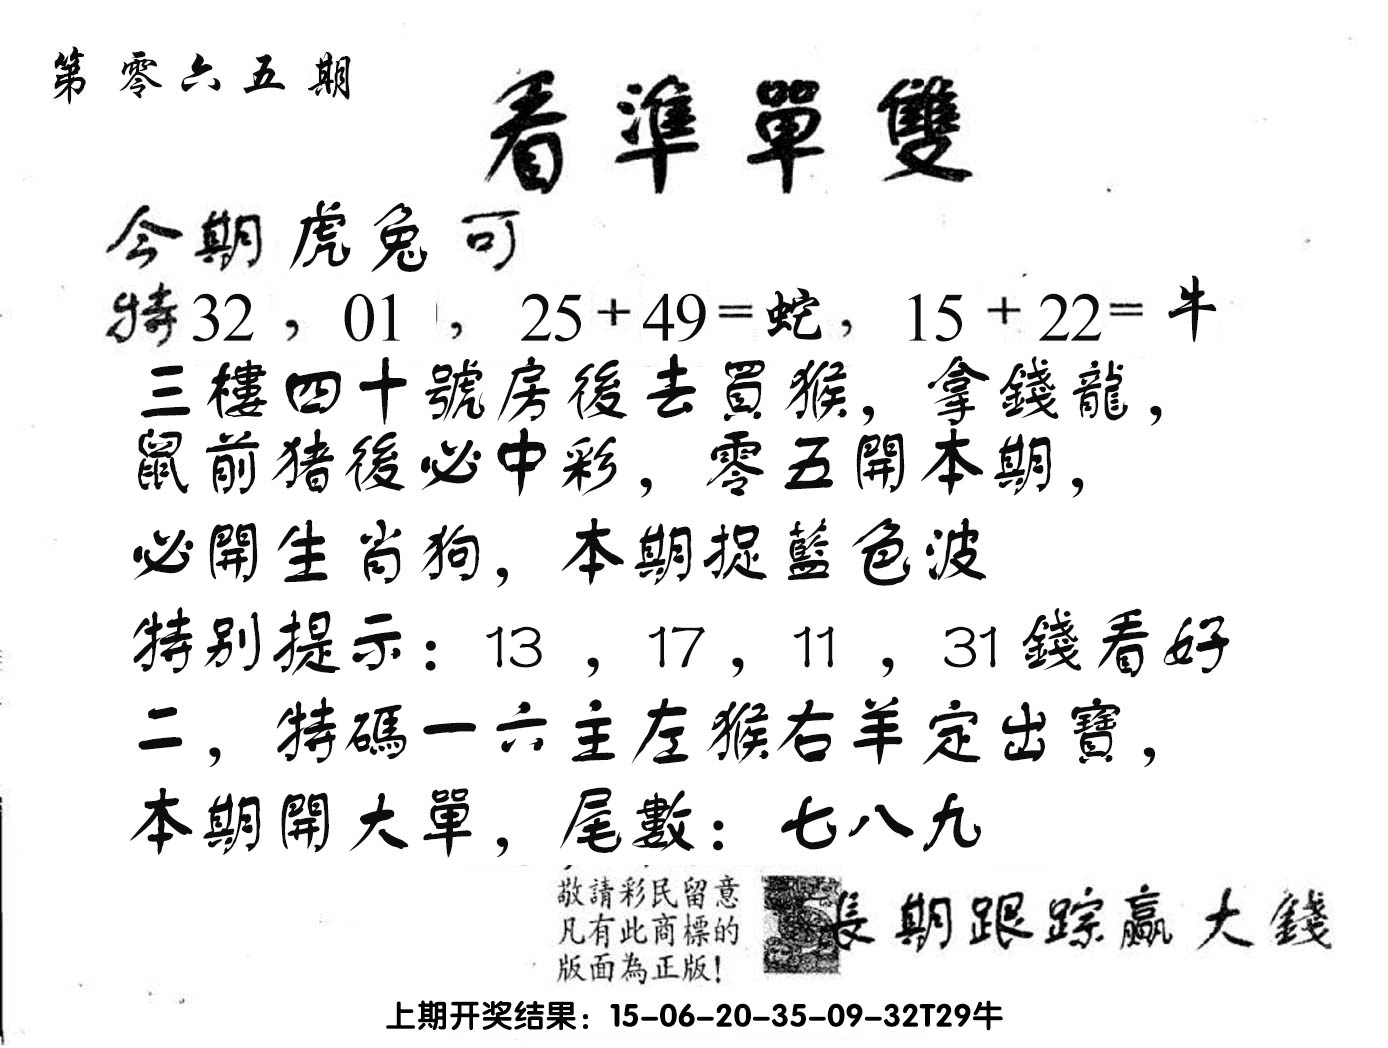 第零六五期
看準單雙
今期虎兔可
特32，01，25+49=蛇，15+22=牛
三樓四十號房後去買猴，拿錢龍，
鼠前猪後必中彩，零五開本期，
必開生肖狗，本期捉藍色波
特别提示：13，17，11，31錢看好
二，特碼一六主左猴右羊定出寶，
本期開大單，尾數：七八九
敬請彩民留意
凡有此商標的
版面為正版！
長期跟踪贏大錢
上期开奖结果：15-06-20-35-09-32T29牛